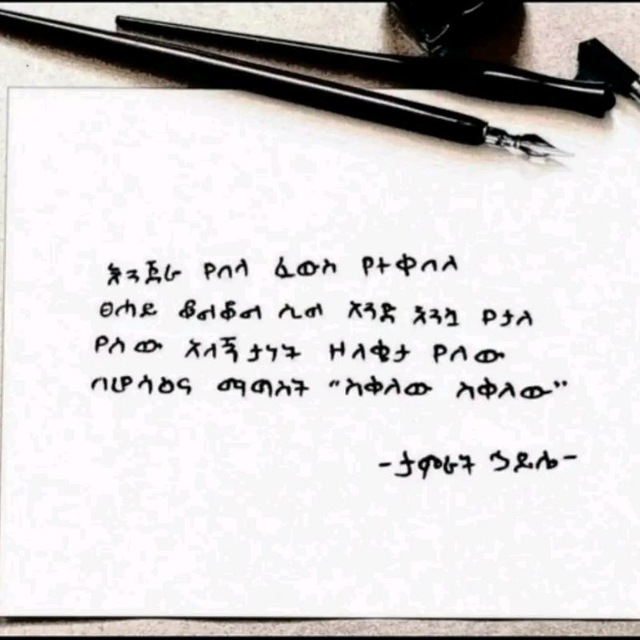 እንጀራ የበላ ፈውስ የተቀበለ
ፀሐይ ቆልቆል ሲል አንድ እንኳ የታለ
የሰው አለኝታነት ዘለቄታ የለው
በሆሳዕና ማግስት “ስቀለው ስቀለው”
-ታምራት ኃይሌ-